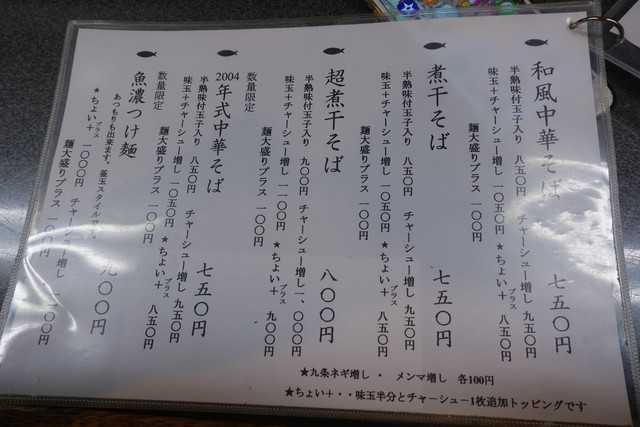 和風中華そば 七五〇円
半熟味付玉子入り 八五〇円 チャーシュー増し 九五〇円
味玉+チャーシュー増し 一〇五〇円 ★ちょい+プラス 八五〇円
麺大盛りプラス 一〇〇円
煮干そば 七五〇円
半熟味付玉子入り 八五〇円 チャーシュー増し 九五〇円
味玉+チャーシュー増し 一〇五〇円 ★ちょい+プラス 八五〇円
麺大盛りプラス 一〇〇円
超煮干そば 八〇〇円
半熟味付玉子入り 九〇〇円 チャーシュー増し 一、〇〇〇円
味玉+チャーシュー増し 一一〇〇円 ★ちょい+プラス 九〇〇円
数量限定 麺大盛りプラス 一〇〇円
2004年式中華そば 七五〇円
半熟味付玉子入り 八五〇円 チャーシュー増し 九五〇円
味玉+チャーシュー増し 一〇五〇円 ★ちょい+プラス 八五〇円
数量限定 麺大盛りプラス 一〇〇円
魚濃つけ麺 九〇〇円
あつもりも出来ます。釜玉スタイル
★ちょいプラス 一〇〇円 チャーシュー増し 一一〇〇円
麺大盛りプラス 一〇〇円
★九条ネギ増し ・ メンマ増し 各100円
★ちょい+・・味玉半分とチャーシュー1枚追加トッピングです